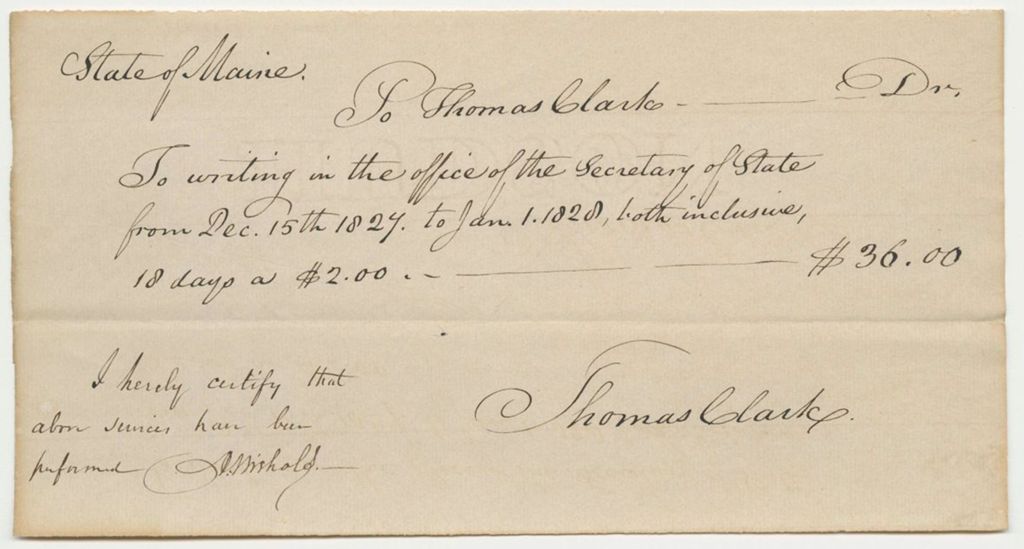 State of Maine.
To Thomas Clark - Dr.
To writing in the office of the Secretary of State
from Dec. 15th 1827. to Jan. 1. 1828, both inclusive,
18 days a $2.00. - $36.00
I hereby certify that
above services have been
performed A. Nichols.
Thomas Clark.